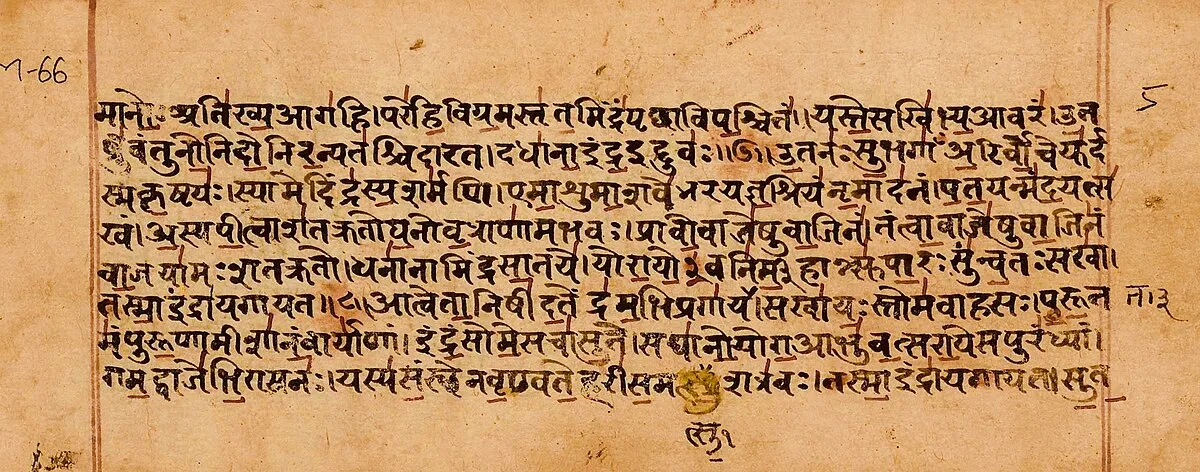 m-66
5
मानोअतिख्यआगहि।परेहिविग्रमस्तृतमिंद्रंपृच्छाविपश्चितं॥यस्तेसखिभ्यआवरं।उत
ब्रुवंतुनोनिदोनिरन्यतश्चिदारत।दधानाइंद्रइद्दुवः॥७॥उतनःसुभगाँअरिर्वोचेयुर्द
स्मकृष्टयः।स्यामेदिंद्रस्यशर्मणि।एमाशुमाशवेभरयज्ञश्रियंनृमादनं।पतयन्मंदयत्स
खं।अस्यपीत्वाशतक्रतोघनोवृत्राणामभवः।प्रावोवाजेषुवाजिनं।तंत्वावाजेषुवाजिनं
वाजयामःशतक्रतो।धनानामिंद्रसातये।योरायो३वनिर्महान्सुपारःसुन्वतःसखा।
तस्माइंद्रायगायत॥८॥आत्वेतानिषीदतेंद्रमभिप्रगायत।सखायःस्तोमवाहसः।पुरूत
मंपुरूणामीशानंवार्याणां।इंद्रंसोमेसचासुते।सघानोयोगआभुवत्सरायेसपुरंध्यां।
गमद्वाजेभिरासनः।यस्यसंस्थेनवृण्वतेहरीसमत्सुशत्रवः।तस्माइंद्रायगायत।सुत